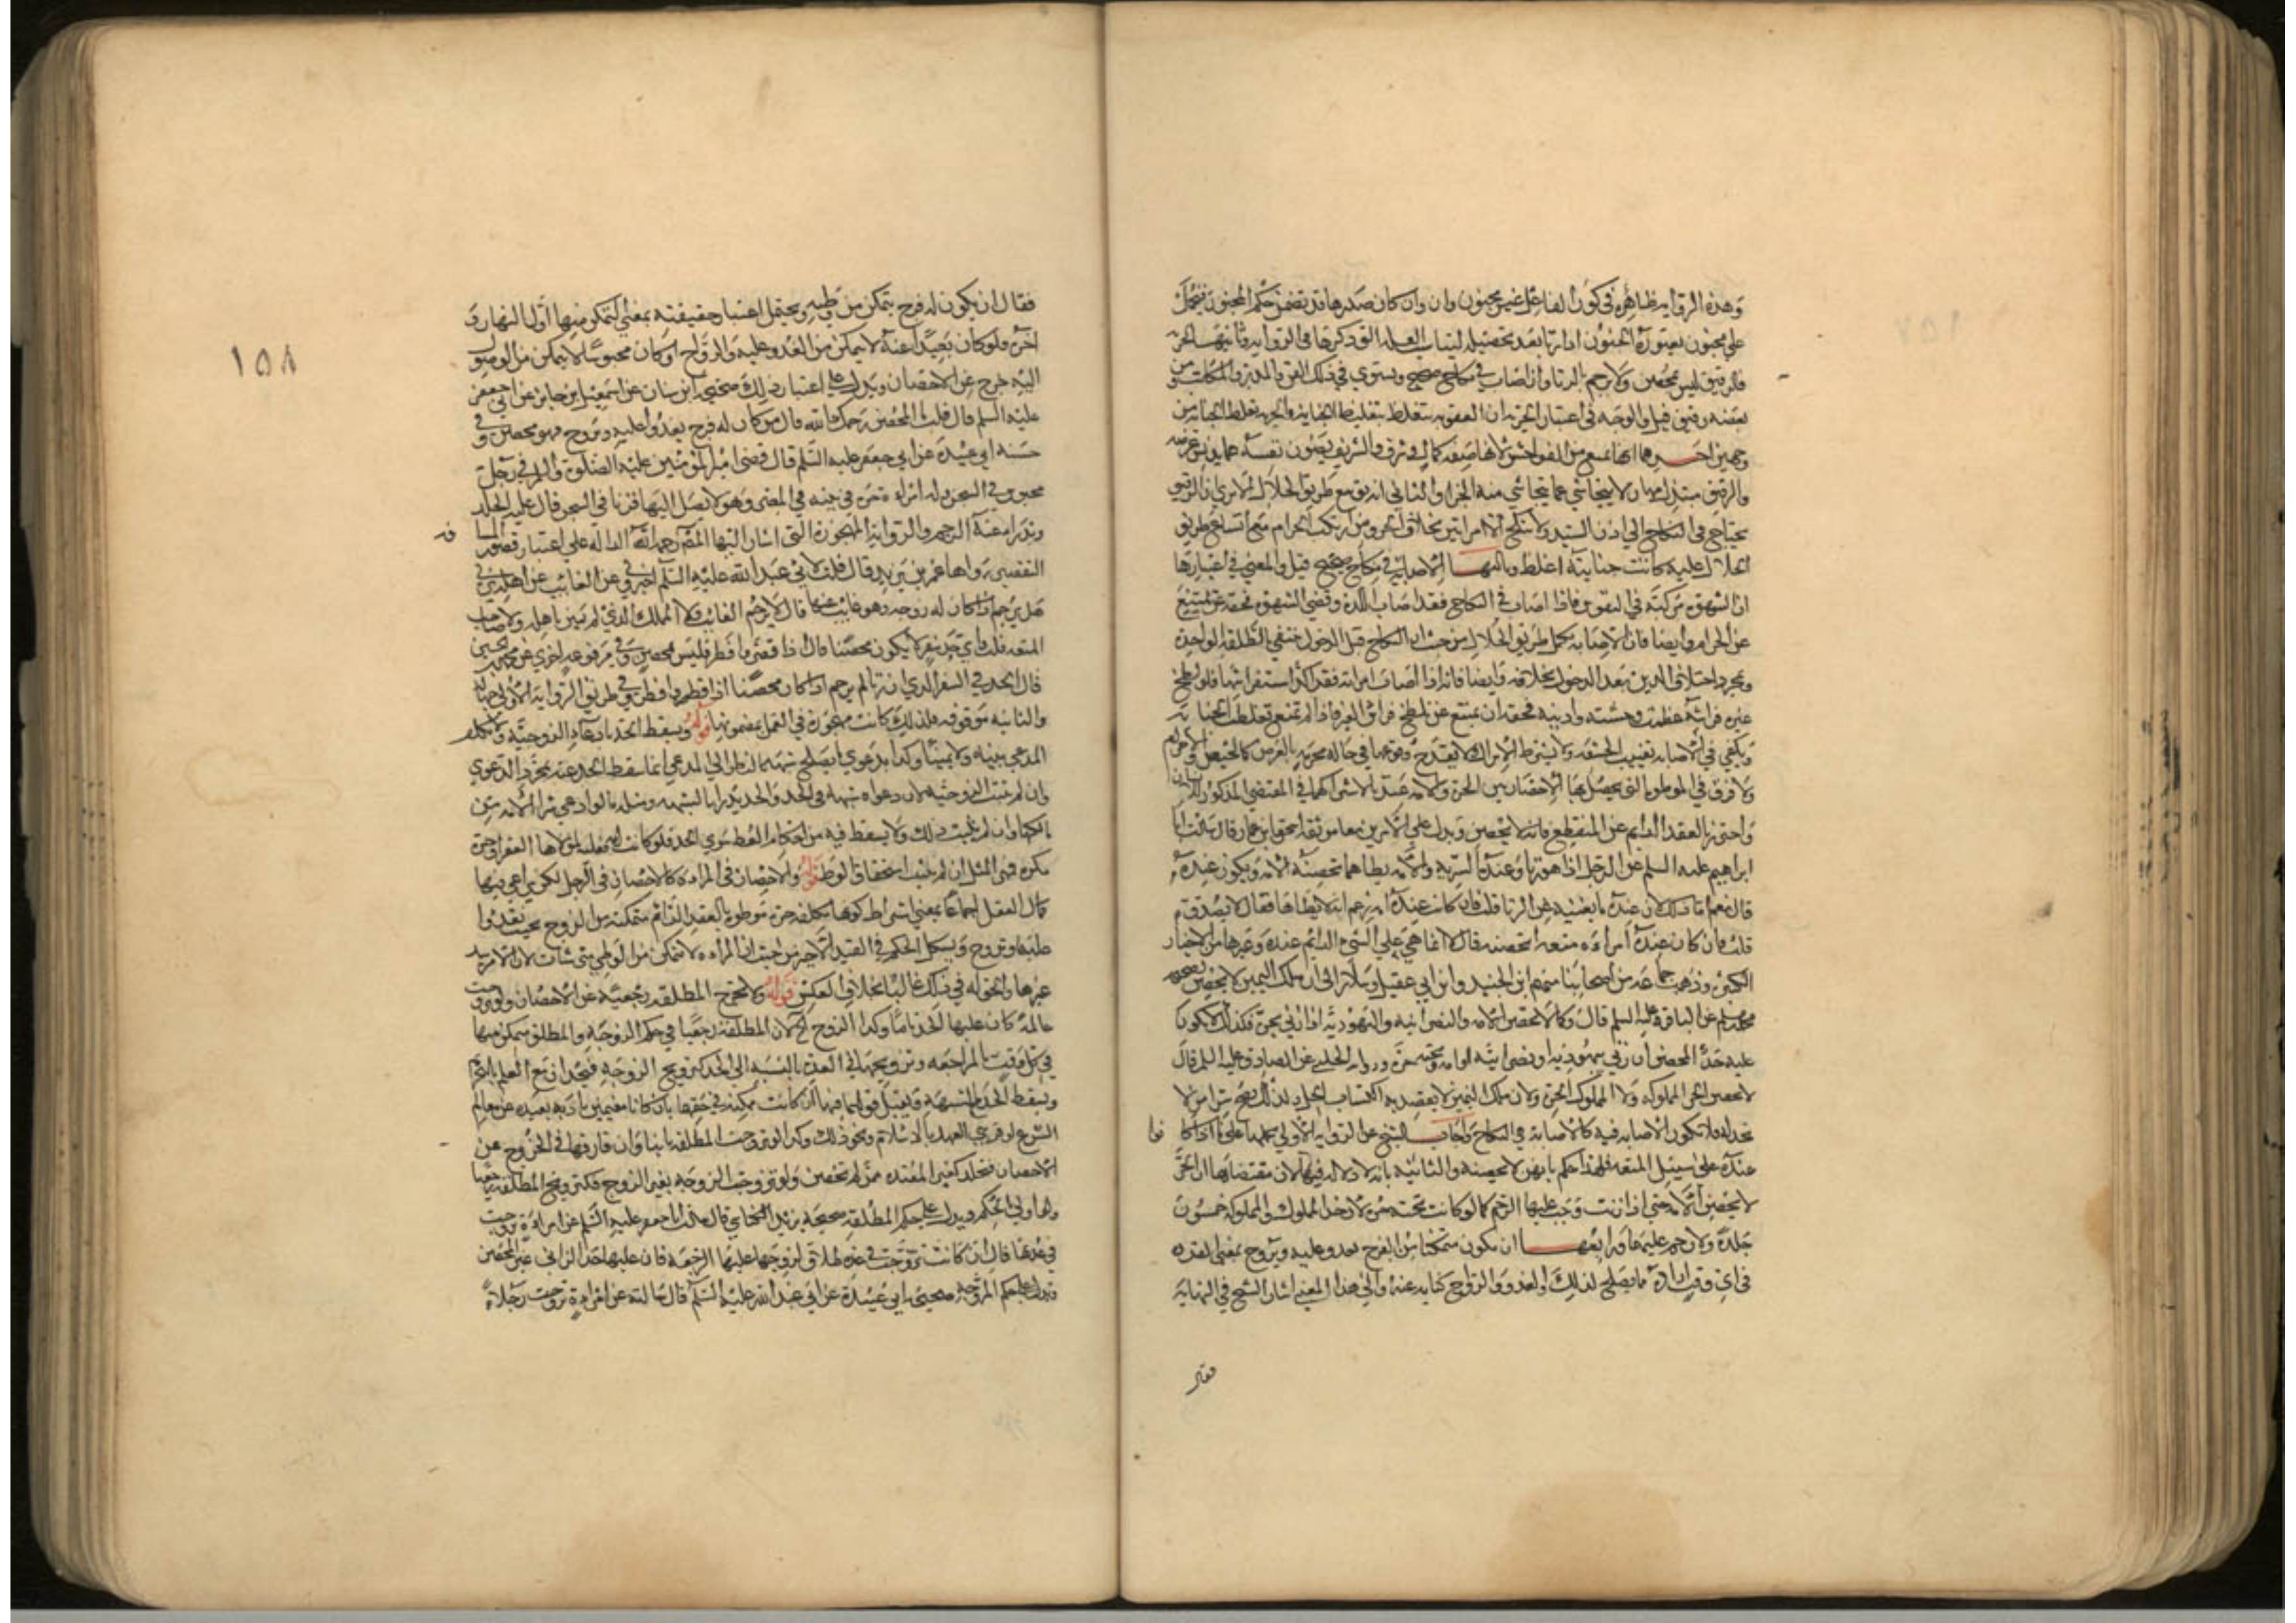 وهذه الرواية ظاهرة في كون الفاعل غير مجنون وان كان صدرها قد تضمن حكم المجنون فتحمل
على مجنون يعتوره الجنون اذا زنا بعد تحصيله لبيان العلة التي ذكرها في الرواية وثانيها الحرية
فالرقيق ليس بمحصن ولا يرجم بالزنا وان اصاب في نكاح صحيح ويستوي في ذلك القن والمدبر والمكاتب ومن
بعضه رقيق قيل والوجه في اعتبار الحرية ان العقوبة تتغلظ بتغليظ الجناية والحرية تغلظ الجناية من
وجهين احدهما انها تمنع من الفواحش لانها صفة كمال وشرف والشريف يصون نفسه عما يدنس عرضه
والرقيق مبتذل مهان لا يتحاشى عما يتحاشى منه الحر والثاني انه يوسع طريق الحلال الا ترى ان الرقيق
يحتاج في النكاح الى اذن السيد ولا ينكح الا امراتين بخلاف الحر ومن ارتكب الحرام مع اتساع طريق
الحلال عليه كانت جنايته اغلظ وثالثها الاصابة في نكاح صحيح قيل والمعنى في اعتبارها
ان الشهوة مركبة في النفوس فاذا اصاب في النكاح فقد اصاب اللذة وقضى الشهوة فحقه ان يمتنع
عن الحرام وايضا فان الاصابة تكمل طريق الحلال من حيث ان النكاح قبل الدخول ينتفي بالطلقة الواحدة
وبمجرد اختلاف الدين وبعد الدخول بخلافه وايضا فانه اذا اصاب امراته فقد اكد استفراشها فلو لطخ
غيره فراشه عظمت وحشته واذيته فحقه ان يمتنع عن تلطيخ فراش الغير فاذا لم يمتنع تغلظت الجناية
ويكفي في الاصابة تغييب الحشفة ولا يشترط الانزال ولا يقدح وقوعها في حالة محرمة بالعرض كالحيض والاحرام
ولا فرق في الموطوءة التي يحصل بها الاحصان بين الحرة والامة عندنا لاشتراكهما في المقتضي المذكور
واحترز بالعقد الدائم عن المنقطع فانه لا يحصن ويدل على الامرين معا موثقة اسحق ابن عمار قال سالت ابا
ابراهيم عليه السلم عن الرجل اذا هو زنا وعنده السرية والامة يطاها تحصنه الامة وتكون عنده
قال نعم انما ذلك لان عنده ما يغنيه عن الزنا قلت فان كانت عنده امة زعم انه لا يطاها فقال لا يصدق
قلت فان كان عنده امراة متعة اتحصنه قال لا انما هي على الشيء الدائم عنده وغيرها من الاخبار
الكثيرة وذهب جماعة من اصحابنا منهم ابن الجنيد وابن ابي عقيل وسلار الى ان ملك اليمين لا يحصن لصحيحة
محمد بن مسلم عن الباقر عليه السلم قال وكما لا تحصن الامة والنصرانية واليهودية اذا زنى بحرة فكذلك لا يكون
عليه حد المحصن ان زنى بيهودية او نصرانية او امة وتحته حرة ورواية الحلبي عن الصادق عليه السلم قال
لا يحصن الحر المملوكة ولا المملوك الحرة ولان ملك اليمين لا يقصد به اكتساب الحل ولذلك يصح شرا من لا
تحل له فلا تكون الاصابة فيه كالاصابة في النكاح واجاب الشيخ عن الرواية الاولى بحملها على ما اذا كا
عنده على سبيل المتعة فلهذا حكم بانهن لا يحصنه والثانية بانه لا دلالة فيها لان مقتضاها ان الحر
لا يحصن الامة حتى اذا زنت وجب عليها الرجم كما لو كانت تحته حرة لان حد المملوك والمملوكة خمسون
جلدة ولا رجم عليهما ورابعها ان يكون متمكنا من الفرج يغدو عليه ويروح بمعنى القدرة
في اي وقت اراده مما يصلح لذلك والغدو والرواح كناية عنه والى هذا المعنى اشار الشيخ في النهاية
فقال
١٥٨
فقال ان يكون له فرج يتمكن من وطيه ويحتمل اعتبار حقيقته بمعنى التمكن منها اول النهار و
اخره فلو كان بعيدا عنه لا يمكن من الغدو عليه والرواح او كان محبوسا لا يتمكن من الوصول
اليه خرج عن الاحصان ويدل على اعتبار ذلك صحيحة ابن سنان عن اسمعيل ابن جابر عن ابي جعفر
عليه السلم قال قلت ما المحصن رحمك الله قال من كان له فرج يغدو عليه ويروح فهو محصن وفي
حسنة ابي عبيدة عن ابي جعفر عليه السلم قال قضى امير المومنين عليه الصلوة والسلم في رجل
محبوس في السجن وله امراة حرة في بيته في المصر وهو لا يصل اليها فزنا في السجن قال عليه الجلد
ويدرا عنه الرجم والرواية المهجورة التي اشار اليها المص رحمه الله الدالة على اعتبار قصور المسافة
التقصير رواها عمر بن يزيد قال قلت لابي عبد الله عليه السلم اخبرني عن الغائب عن اهله يزني
هل يرجم اذا كان له زوجة وهو غائب عنها قال لا يرجم الغائب ولا المملك الذي لم يبن باهله ولا صاحب
المتعة قلت ففي اي حد سفر لا يكون محصنا قال اذا قصر وافطر فليس بمحصن وفي مرفوعة اخرى عن محمد بن الحسين
قال الحد في السفر الذي ان زنا لم يرجم اذا كان محصنا اذا قصر وافطر وفي طريق الرواية الاولى جهالة
والثانية موقوفة فلذلك كانت مهجورة في العمل بمضمونها قوله ويسقط الحد بادعاء الزوجية ولا يكلف
المدعي بينة ولا يمينا وكذا بدعوى ما يصلح شبهة بالنظر الى المدعي انما سقط الحد عنه بمجرد الدعوى
وان لم تثبت الزوجية لان دعواه شبهة في الحد والحد يدرا بالشبهة ومثله ما لو ادعى شرا الامة من
مالكها وان لم يثبت ذلك ولا يسقط فيه من احكام الوطي سوى الحد فلو كانت امة فعليه لمولاها العقر او حرة
مكرهة فمهر المثل ان لم يثبت استحقاق الوطي قوله والاحصان في المراة كالاحصان في الرجل لكن يراعى فيها
كمال العقل اجماعا بمعنى اشتراط كونها مكلفة حرة موطوءة بالعقد الدائم متمكنة من الزوج بحيث يغدوا
عليها ويروح ويشكل الحكم في القيد الاخير من حيث ان المراة لا تتمكن من الوطي متى شاءت لان الامر بيد
غيرها والحق له في ذلك غالبا بخلاف العكس قوله ولا تخرج المطلقة رجعية عن الاحصان ولو تزوجت
عالمة كان عليها الحد تاما وكذا الزوج لان المطلقة رجعيا في حكم الزوجة والمطلق متمكن منها
في كل وقت بالمراجعة وتزويجها في العدة بالنسبة الى الحد كتزويج الزوجة فتحد ان مع العلم بالتحريم
ويسقط الحد مع الشبهة ويقبل قولهما فيها ان كانت ممكنة في حقهما بان كانا مقيمين بادية بعيدة عن معالم
الشرع او قريبي العهد بالاسلام ونحو ذلك وكذا لو تزوجت المطلقة باينا وان فارقها في الخروج عن
الاحصان فتجلد كغير المعتدة ممن لم تحصن ولو تزوجت الزوجة بغير الزوج فكتزويج المطلقة رجعيا
واولى الحكم ويدل على حكم المطلقة صحيحة يزيد الكناسي قال سالت ابا جعفر عليه السلم عن امراة تزوجت
في عدتها قال ان كانت تزوجت في عدة طلاق لزوجها عليها الرجعة فان عليها حد الزاني غير المحصن
ويدل على حكم المزوجة صحيحة ابي عبيدة عن ابي عبد الله عليه السلم قال سالته عن امراة تزوجت رجلا